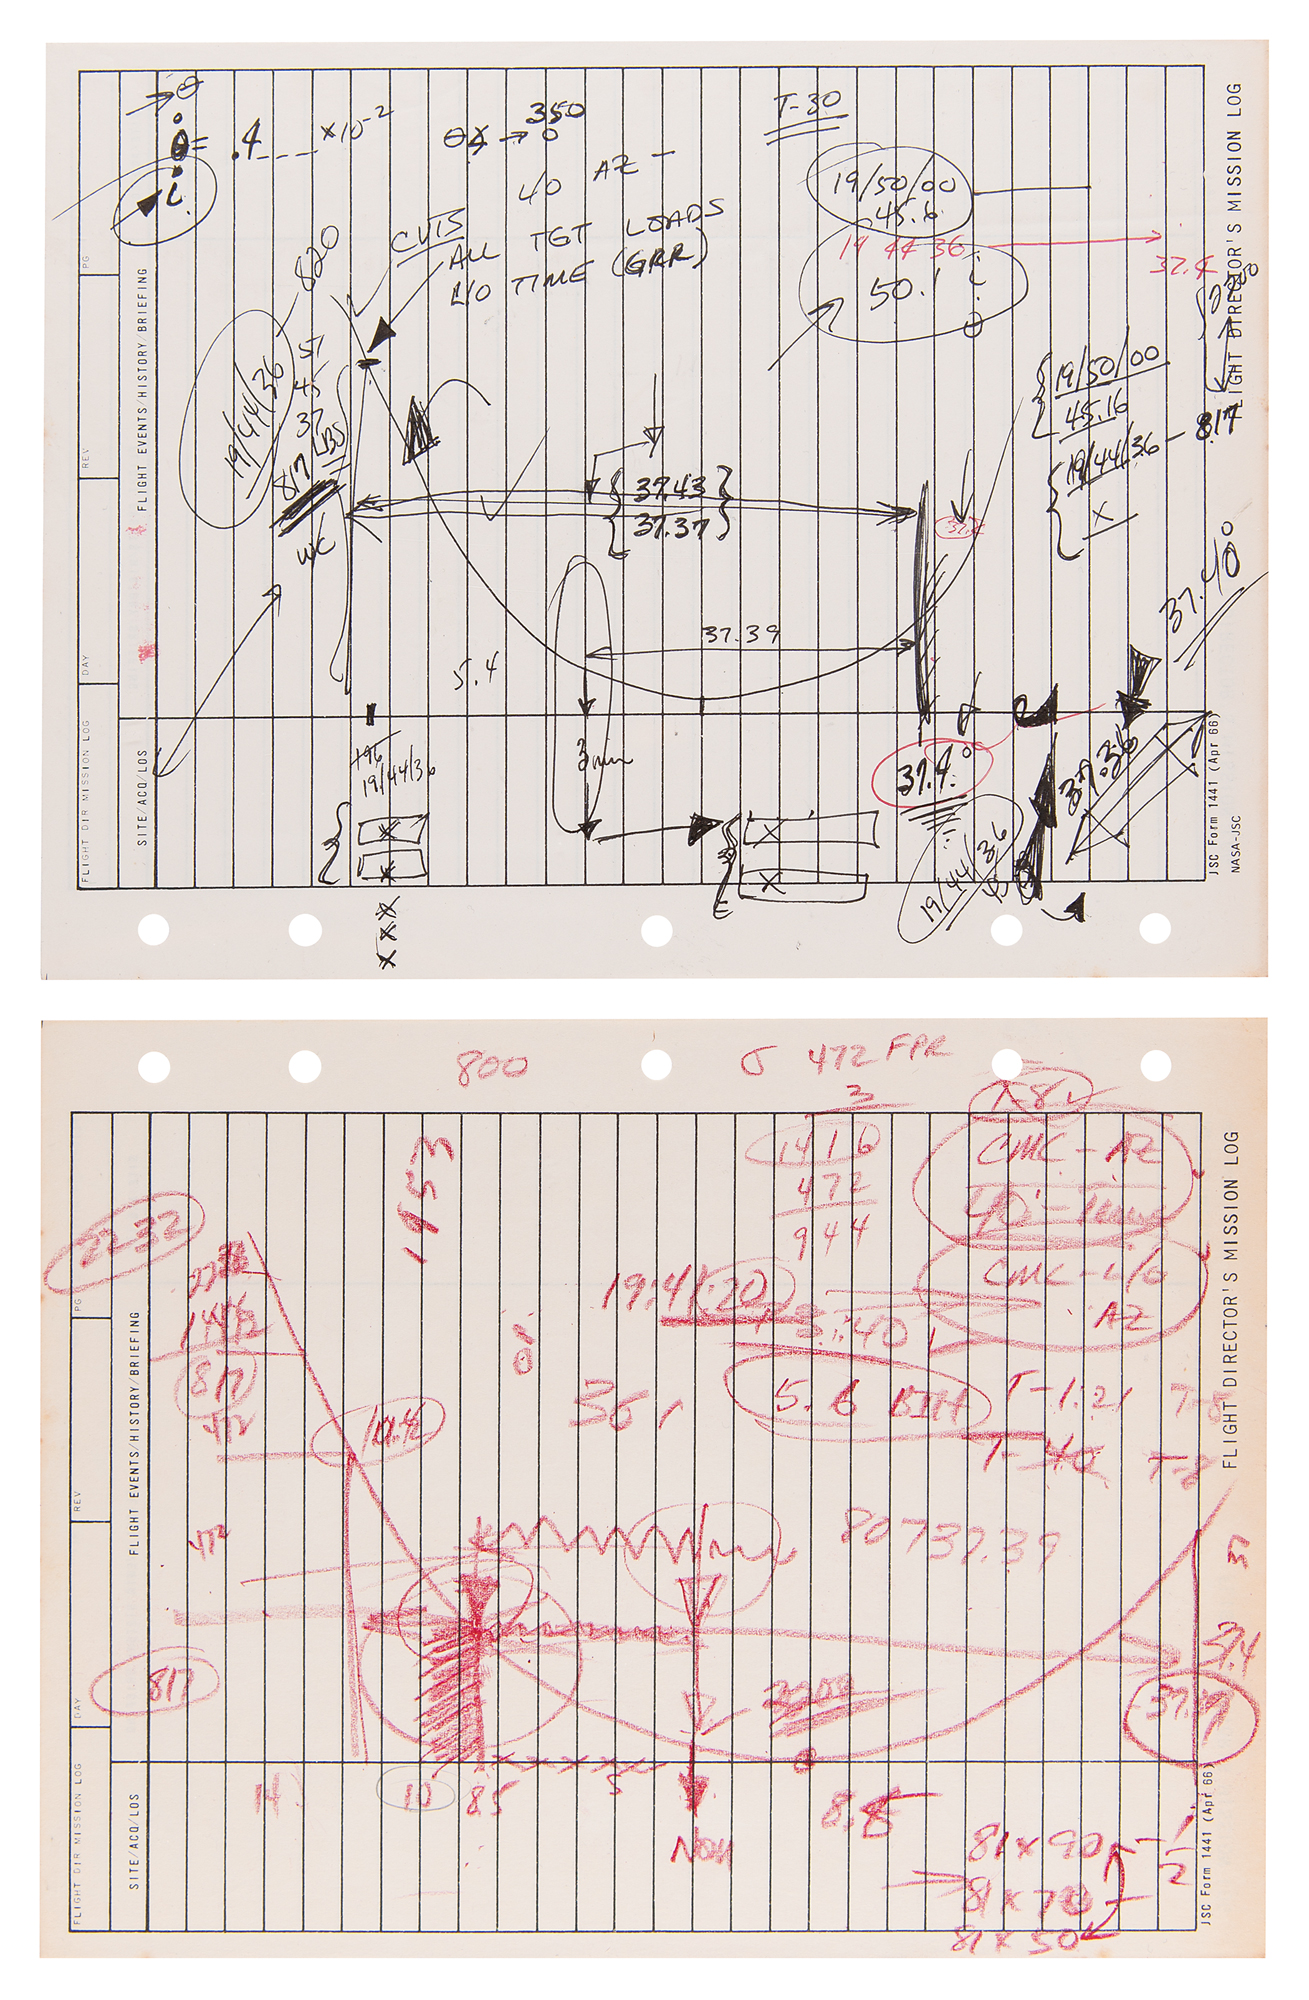 θ
θ = .4 _ _ _ ×10⁻²
i
350
T-30
40 AZ –
CUTS
ALL TGT LOADS
L/O TIME (GRR)
19/50/00
45.6
19 44 36
37.4
50.1 i
θ
820
19/44/36
51
45
37
817 LBS
WC
37.43
37.37
37.39
5.4
3 min
19/50/00
45.16
19/44/36 – 817
X
37.40°
37.36
19/44/36
X
X
XXX
X
X
37.4°
19/44/36
FLIGHT DIR MISSION LOG
DAY
REV
PG
SITE/ACQ/LOS
FLIGHT EVENTS/HISTORY/BRIEFING
FLIGHT DIRECTOR'S MISSION LOG
JSC Form 1441 (Apr 66)
NASA-JSC
800
σ 472 FPR
3
1416
472
944
T-8
CMC – AZ
CMC – L/O
AZ
1453
2232
817
472
19:41:20
+ 8:40
10
5.6
T-1:21
T-8
T-40
T-8
472
80737.39
37
37.4
817
14
10
85
5
Nom
8.85
81 x 90
– 1/2
81 x 70
81 x 50
FLIGHT DIR MISSION LOG
DAY
REV
PG
SITE/ACQ/LOS
FLIGHT EVENTS/HISTORY/BRIEFING
FLIGHT DIRECTOR'S MISSION LOG
JSC Form 1441 (Apr 66)